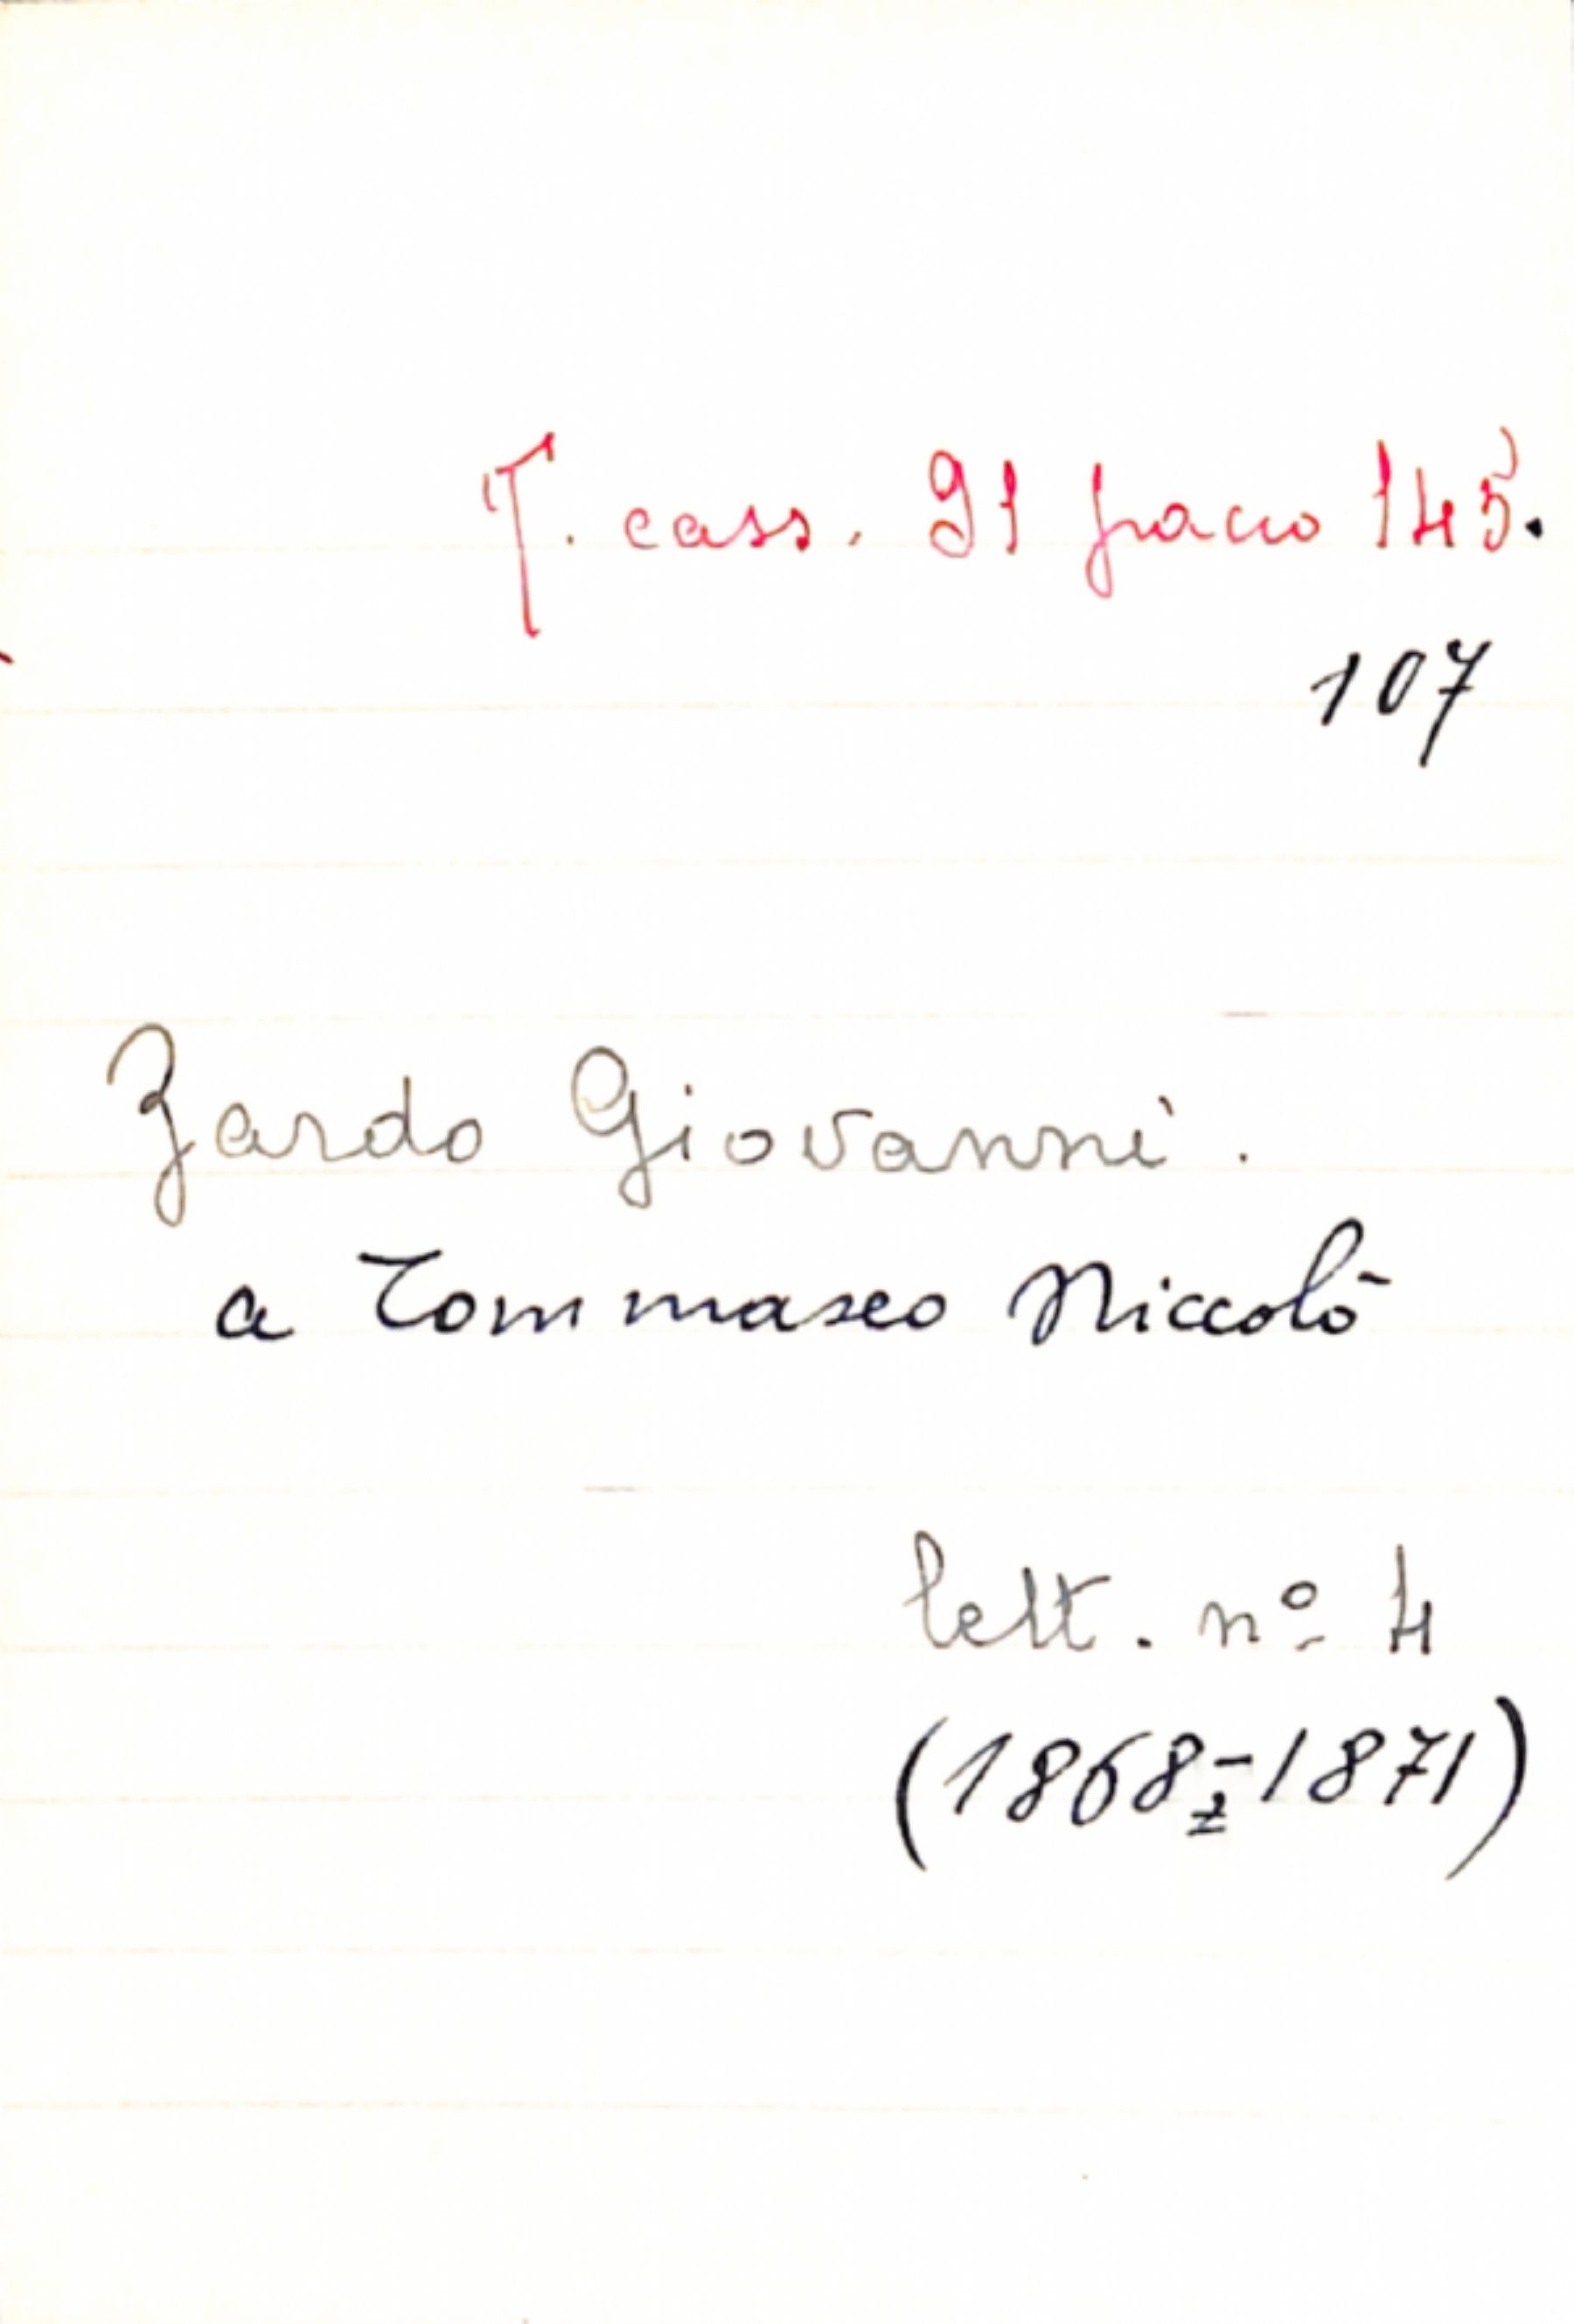 T. cass. 91 pacco 145.
107
Zardo Giovanni.
a Tommaseo Niccolò
lett. nº 4
(1868-1871)
2